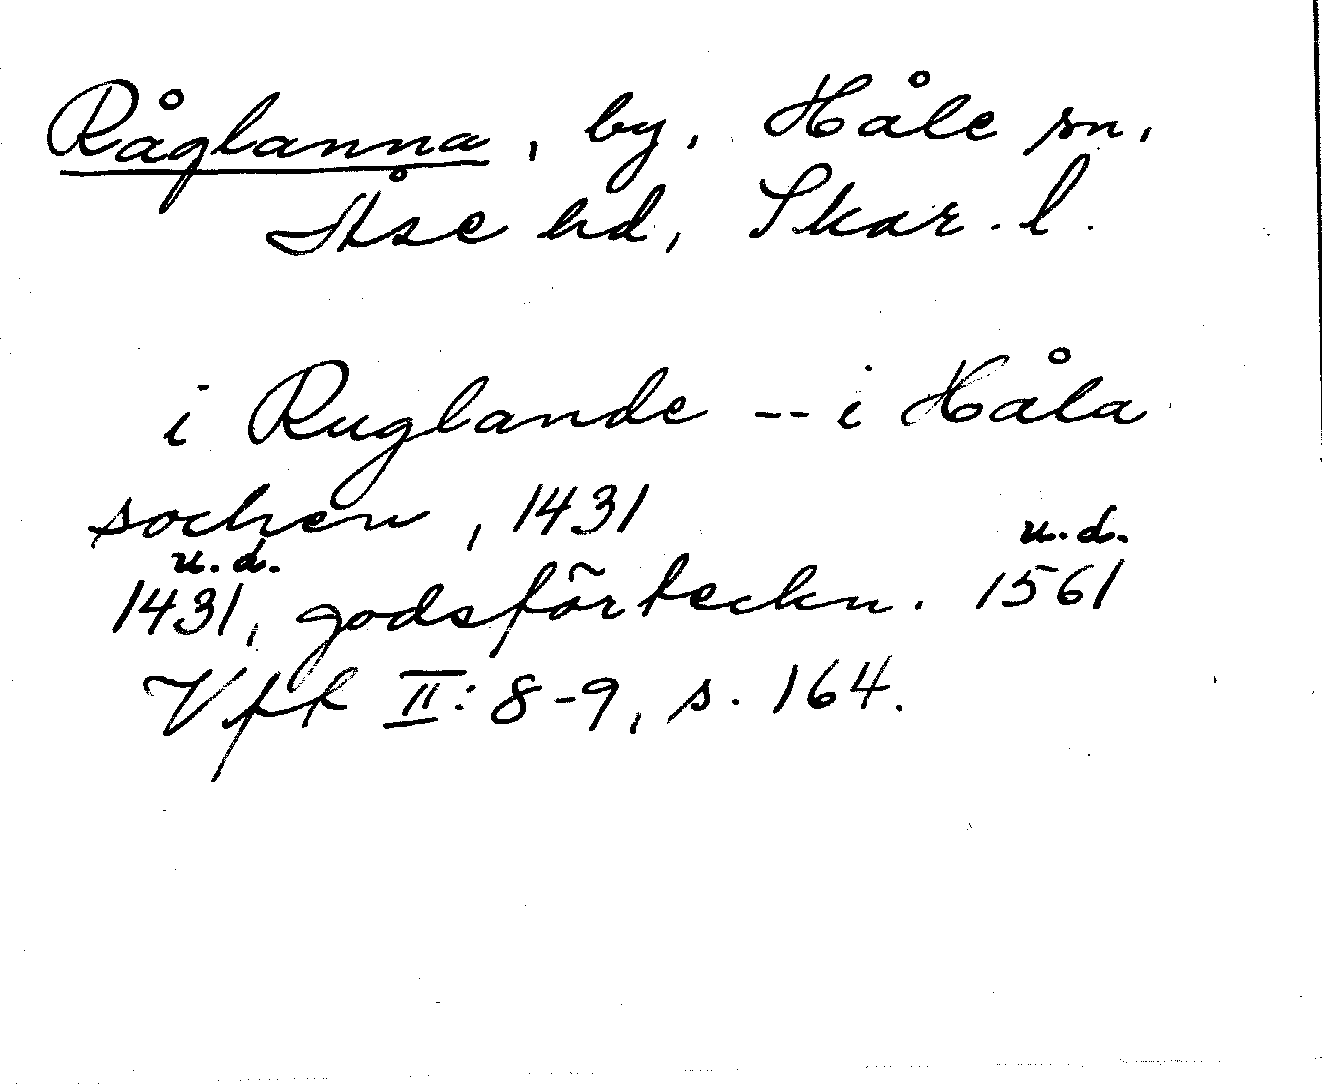 Råglanna, by, Håle sn,
Åse hd, Skar. l.
i Ruglande -- i Håla
sochen, 1431
u.d. u.d.
1431, godsförteckn. 1561
Vfk II: 8-9, s. 164.